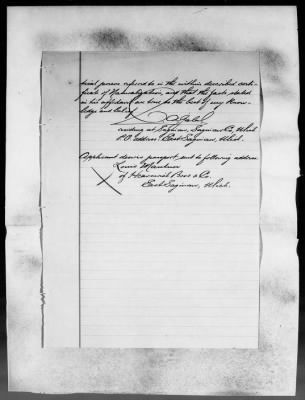 tical person referred to in the within described certi-
ficate of Naturalization, and that the facts stated
in his affidavit are true to the best of my know-
ledge and belief.
residing at Saginaw, Saginaw Co, Mich
P.O. address East Saginaw, Mich.
Applicant desires passport sent to following address
Louis
of Heavenrich Bros & Co.
East Saginaw, Mich.